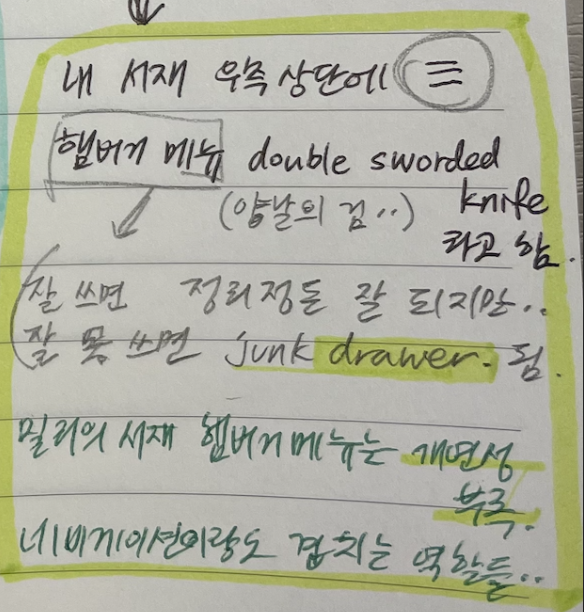 내 서재 우측 상단에 ☰
햄버거 메뉴 double sworded
(양날의 검..) knife
라고 함.
잘 쓰면 정리정돈 잘 되지만..
잘 못 쓰면 junk drawer. 됨.
밀리의 서재 햄버거 메뉴는 개연성
부족.
네비게이션이랑도 겹치는 역할들..